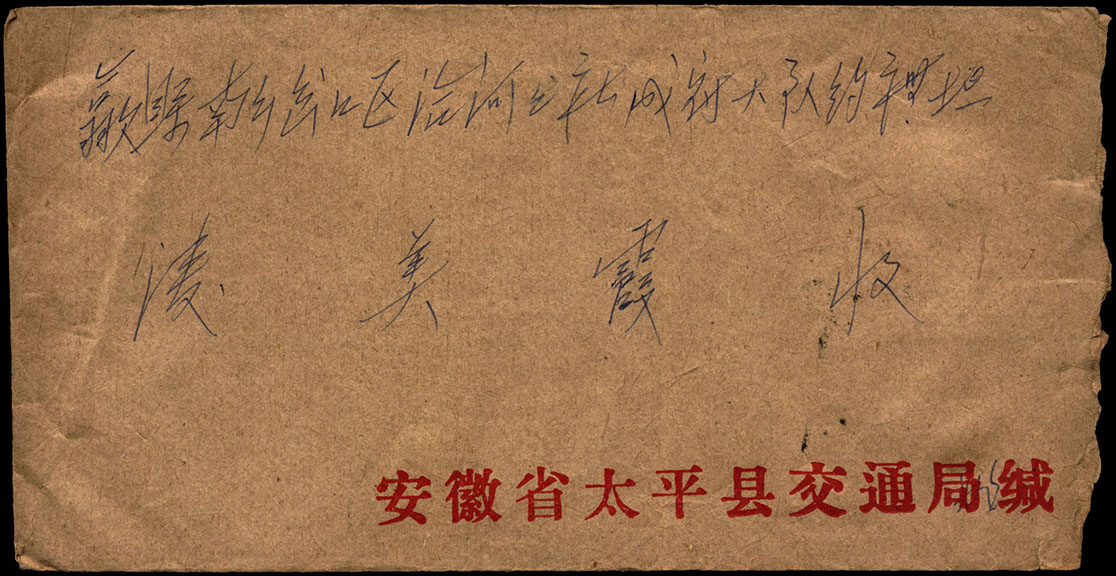 歙县南乡岔口区洽河公社成村大队约塽坦
凌美霞收
安徽省太平县交通局缄